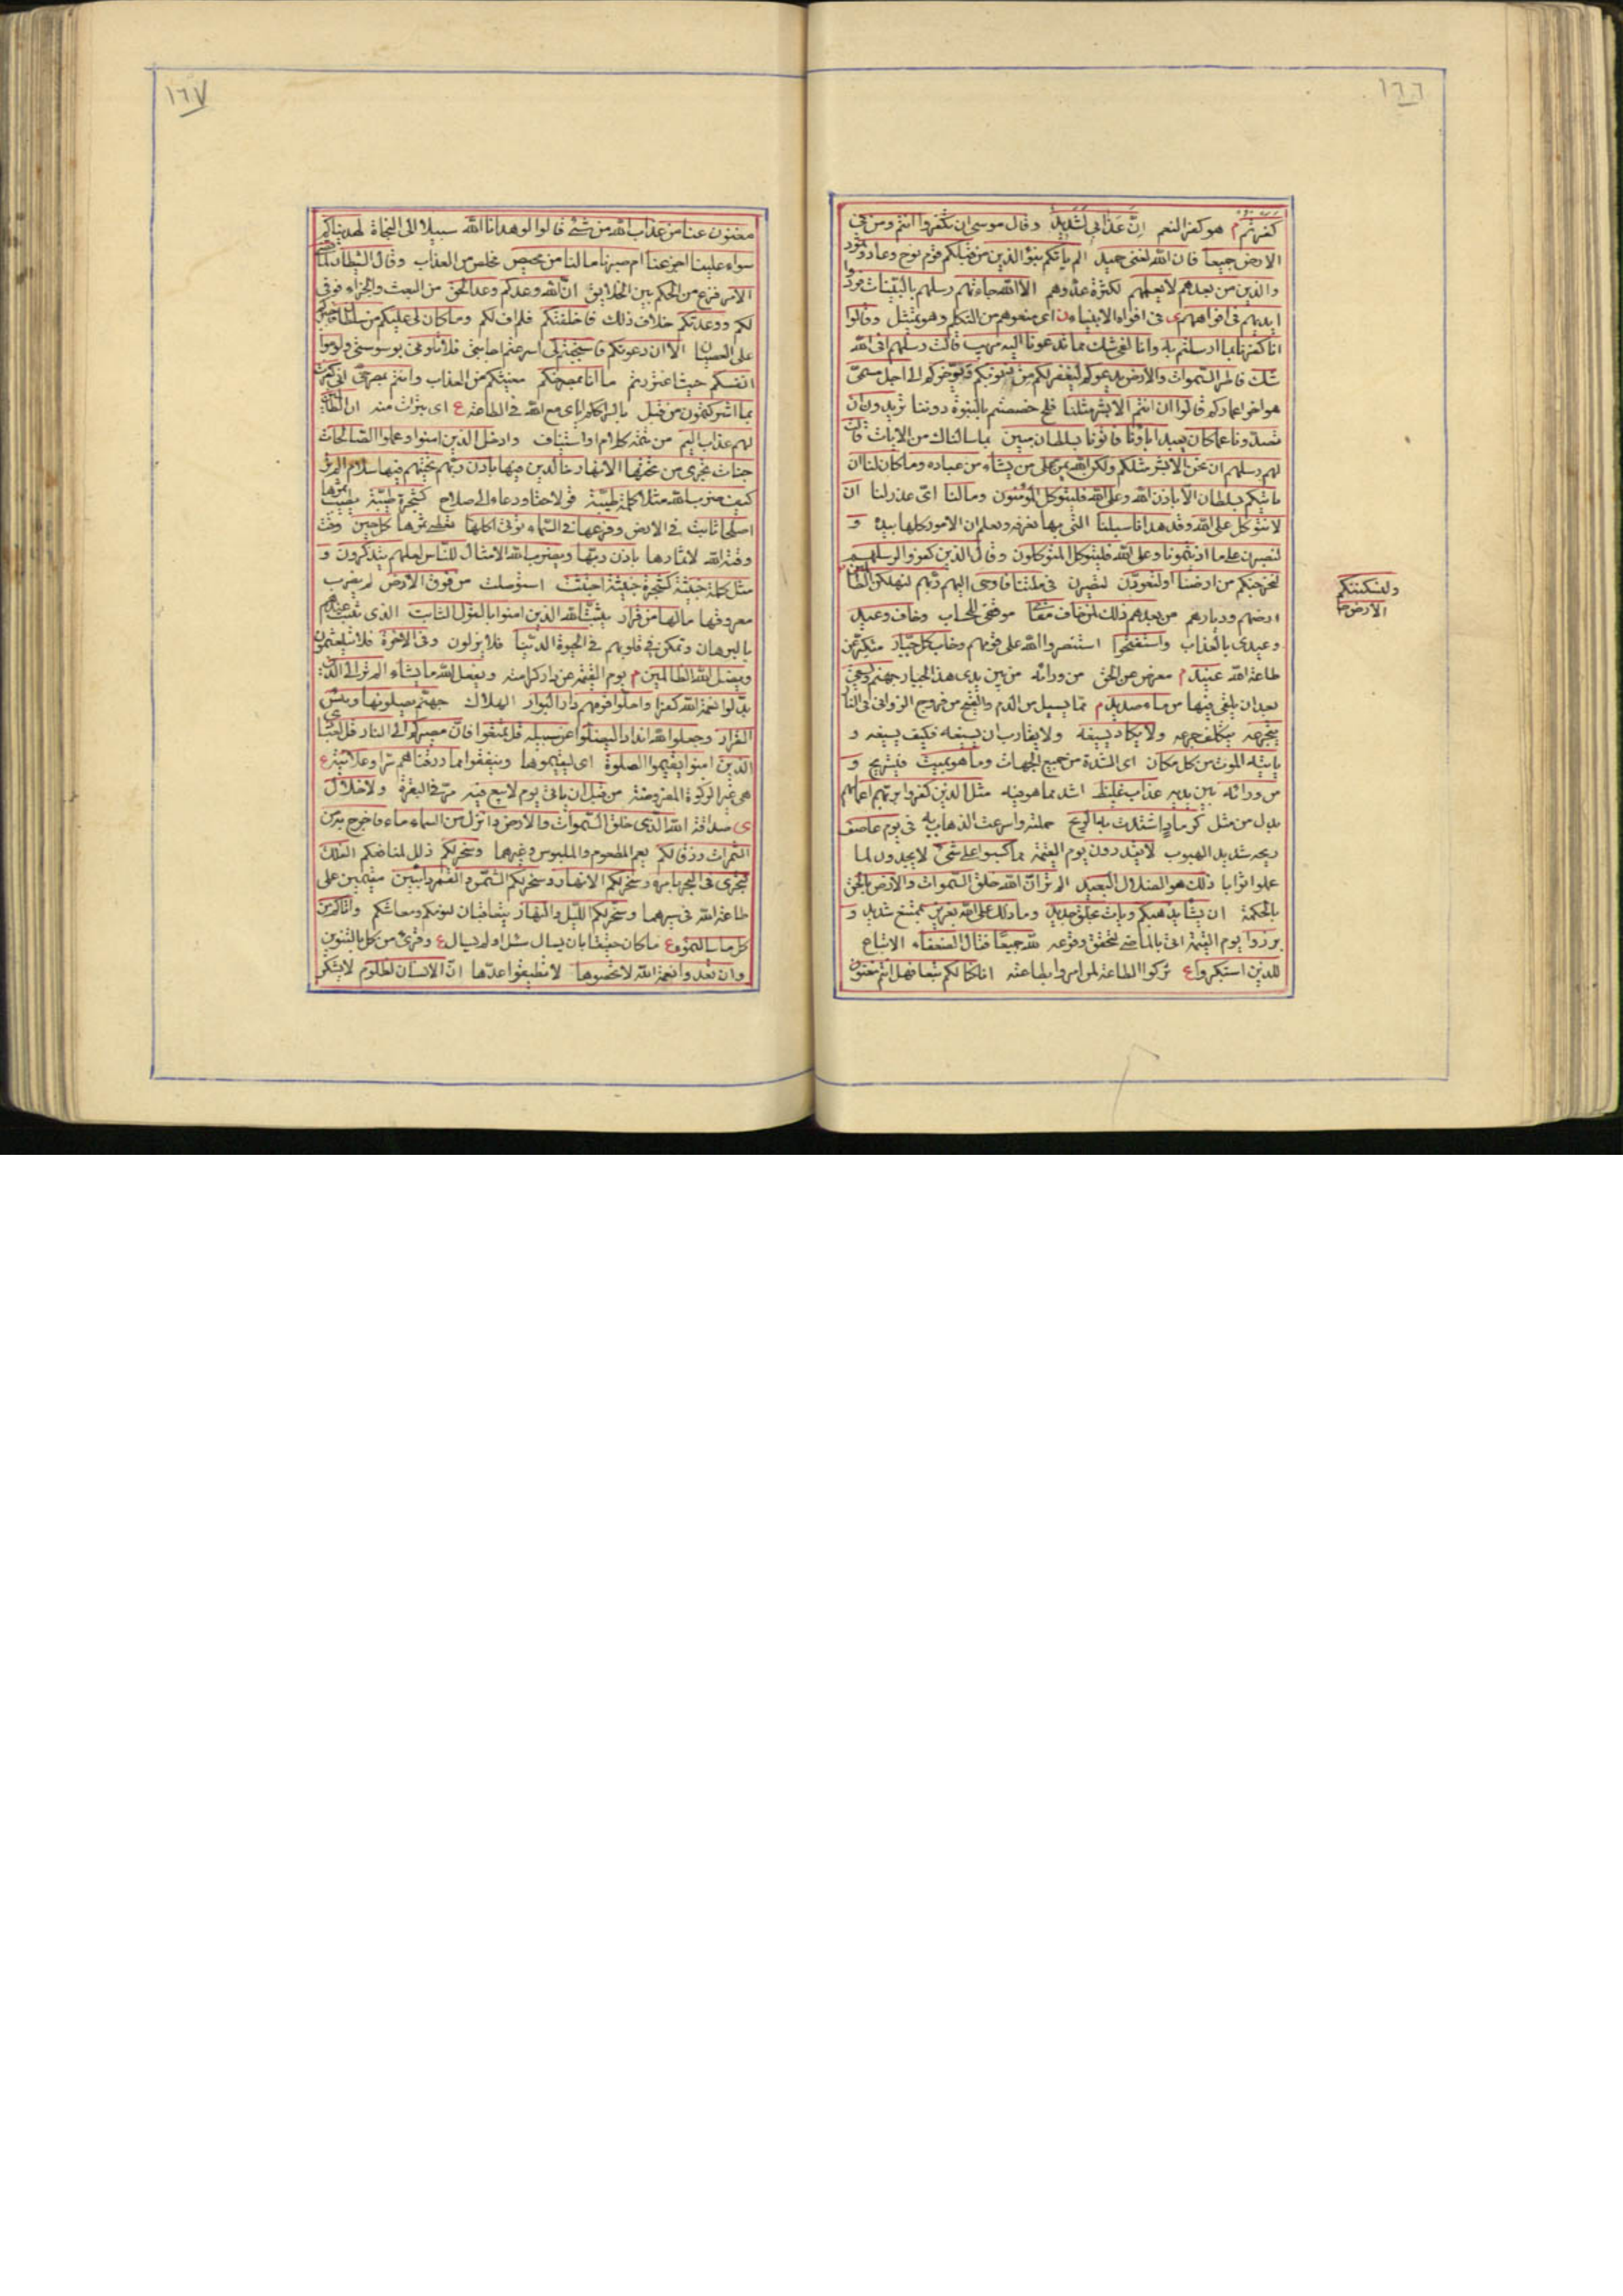 ١٦٦
كفرتم م هو كفر النعم اِنَّ عَذابي لَشَديدٌ وقال موسى ان تكفروا انتم ومن في
الارض جميعا فان الله لغنى حميد الم ياتكم نبؤا الذين من قبلكم قوم نوح وعاد وثمود
والذين من بعدهم لا يعلمهم لكثرة عددهم الا الله جاءتهم رسلهم بالبينات فردوا
ايديهم فى افواههم ى فى افواه الانبياء ن اى منعوهم من التكلم وهو تمثيل وقالوا
انا كفرنا بما ارسلتم به وانا لفى شك مما تدعوننا اليه مريب قالت رسلهم افى الله
شك فاطر السموات والارض يدعوكم ليغفر لكم من ذنوبكم ويؤخركم الى اجل مسمى
هو اخر اعماركم قالوا ان انتم الا بشر مثلنا فلم خصصتم بالنبوة دوننا تريدون ان
تصدونا عما كان يعبد اباؤنا فاتونا بسلطان مبين بما سالناك من الايات قالت
لهم رسلهم ان نحن الا بشر مثلكم ولكن الله يمن على من يشاء من عباده وما كان لنا ان
ناتيكم بسلطان الا باذن الله وعلى الله فليتوكل المؤمنون وما لنا اى عذر لنا ان
لا نتوكل على الله وقد هدانا سبلنا التى بها نعرفه ونعلم ان الامور كلها بيده و
لنصبرن على ما اذيتمونا وعلى الله فليتوكل المتوكلون وقال الذين كفروا لرسلهم
لنخرجنكم من ارضنا او لتعودن لتصيرن فى ملتنا فاوحى اليهم ربهم لنهلكن الظالمين
ولنسكننكم
الارض
ارضهم وديارهم من بعدهم ذلك لمن خاف مقامى موقفى للحساب وخاف وعيد
وعيدى بالعذاب واستفتحوا استنصروا الله على قومهم وخاب كل جبار متكبر عن
طاعة الله عنيد م معرض عن الحق من ورائه من بين يدى هذا الجبار جهنم
بعد ان يلقى فيها من ماء صديد م مما يسيل من الدم والقيح من فروج الزوانى فى النار
يتجرعه يتكلف جرعه ولا يكاد يسيغه ولا يقارب ان يسيغه فكيف يسيغه و
ياتيه الموت من كل مكان اى الشدة من جميع الجهات وما هو بميت فيستريح و
من ورائه بين يديه عذاب غليظ اشد مما هو فيه مثل الذين كفروا بربهم اعمالهم
بدل من مثل كرماد اشتدت به الريح حملته واسرعت الذهاب به فى يوم عاصف
ريحه شديد الهبوب لا يقدرون يوم القيمة مما كسبوا على شئ لا يجدون لما
عملوا ثوابا ذلك هو الضلال البعيد الم تر ان الله خلق السموات والارض بالحق
بالحكمة ان يشا يذهبكم ويات بخلق جديد وما ذلك على الله بعزيز بممتنع شديد و
برزوا يوم القيمة اتى بالماضى لتحقق وقوعه لله جميعا فقال الضعفاء الاتباع
للذين استكبروا ع تركوا الطاعة لمن امروا بطاعته انا كنا لكم تبعا فهل انتم مغنون
١٦٧
مغنون عنا من عذاب الله من شئ قالوا لو هدانا الله سبيلا الى النجاة لهديناكم
سواء علينا اجزعنا ام صبرنا ما لنا من محيص مخلص من العذاب وقال الشيطان لما قضى
الامر فرغ من الحكم بين الخلايق ان الله وعدكم وعد الحق من البعث والجزاء فوفى
لكم ووعدتكم خلاف ذلك فاخلفتكم فلم اف لكم وما كان لى عليكم من سلطان
على العصيان الا ان دعوتكم فاستجبتم لى اسرعتم اجابتى فلا تلومونى بوسوستى ولوموا
انفسكم حيث اغتررتم ما انا بمصرخكم مغيثكم من العذاب وانتم بمصرخى انى كفرت
بما اشركتمون من قبل باشراككم اياى مع الله فى الطاعة ع اى تبرات منه ان الظالمين
لهم عذاب اليم من تتمة كلام او استيناف وادخل الذين امنوا وعملوا الصالحات
جنات تجرى من تحتها الانهار خالدين فيها باذن ربهم تحيتهم فيها سلام الم تر
كيف ضرب الله مثلا كلمة طيبة قولا حقا ودعاء الى صلاح كشجرة طيبة يطيب ثمرها
اصلها ثابت فى الارض وفرعها فى السماء تؤتى اكلها تعطى ثمرها كل حين وقت
وقته الله لاثمارها باذن ربها ويضرب الله الامثال للناس لعلهم يتذكرون و
مثل كلمة خبيثة كشجرة خبيثة اجتثت استوصلت من فوق الارض لم يضرب
عروقها ما لها من قرار يثبت الله الذين امنوا بالقول الثابت الذى ثبت عندهم
بالبرهان وتمكن فى قلوبهم فى الحيوة الدنيا فلا يزلون وفى الاخرة فلا يتلعثمون
ويضل الله الظالمين م يوم القيمة عن دار كرامته ويفعل الله ما يشاء الم تر الى الذين
بدلوا نعمة الله كفرا واحلوا قومهم دار البوار الهلاك جهنم يصلونها وبئس
القرار وجعلوا لله اندادا ليضلوا عن سبيله قل تمتعوا فان مصيركم الى النار قل لعبادى
الذين امنوا يقيموا الصلوة اى ليقيموها وينفقوا مما رزقناهم سرا وعلانية ع
هى غير الزكوة المفروضة من قبل ان ياتى يوم لا بيع فيه مر فى البقرة ولا خلال
ى صداقة الله الذى خلق السموات والارض وانزل من السماء ماء فاخرج به من
الثمرات رزقا لكم يعم المطعوم والملبوس وغيرهما وسخر لكم ذلل لمنافعكم الفلك
لتجرى فى البحر بامره وسخر لكم الانهار وسخر لكم الشمس والقمر دائبين مقيمين على
طاعة الله فى سيرهما وسخر لكم الليل والنهار يتعاقبان لنومكم ومعاشكم واتاكم من
كل ما سالتموه ع ما كان حقيقا بان يسال سئل او لم يسال ع وقرئ من كل بالتنوين
وان تعدوا نعمة الله لا تحصوها لا تطيقوا عدها ان الانسان لظلوم لا يشكر